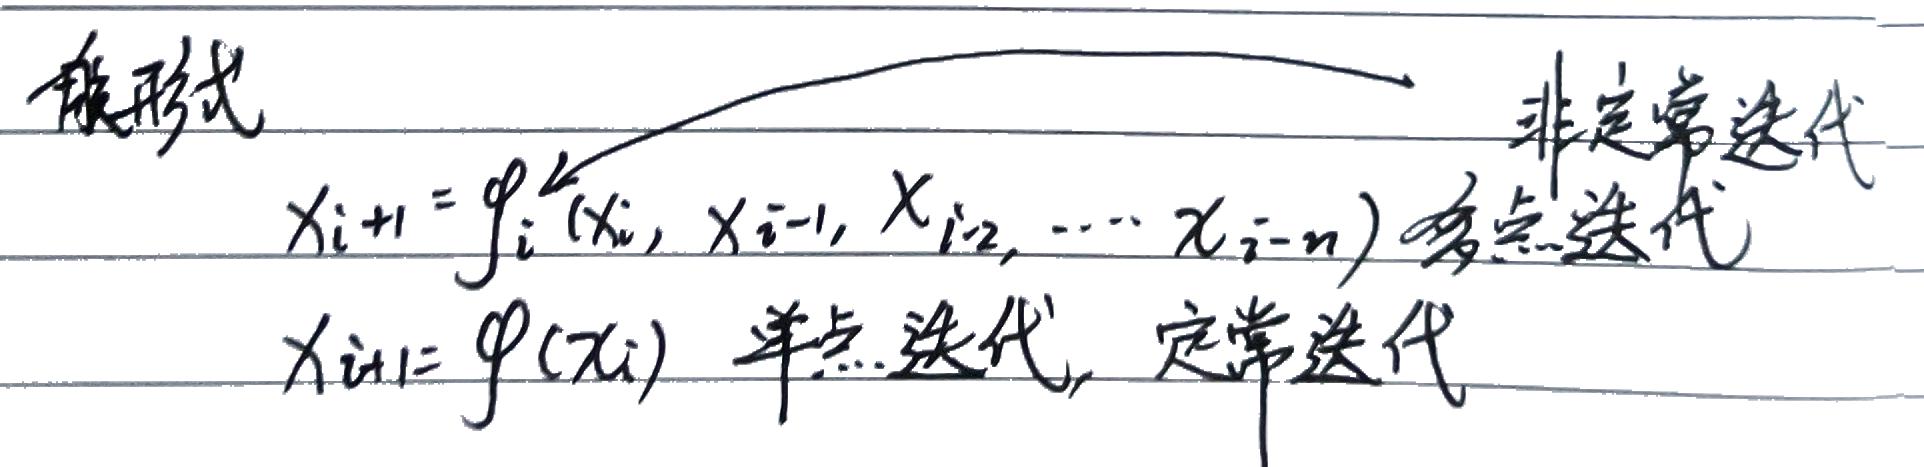 般形式
非定常迭代
x_{i+1} = φ_i (x_i, x_{i-1}, x_{i-2}, ⋯⋯ x_{i-n}) 多点迭代
x_{i+1} = φ(x_i) 单点迭代, 定常迭代